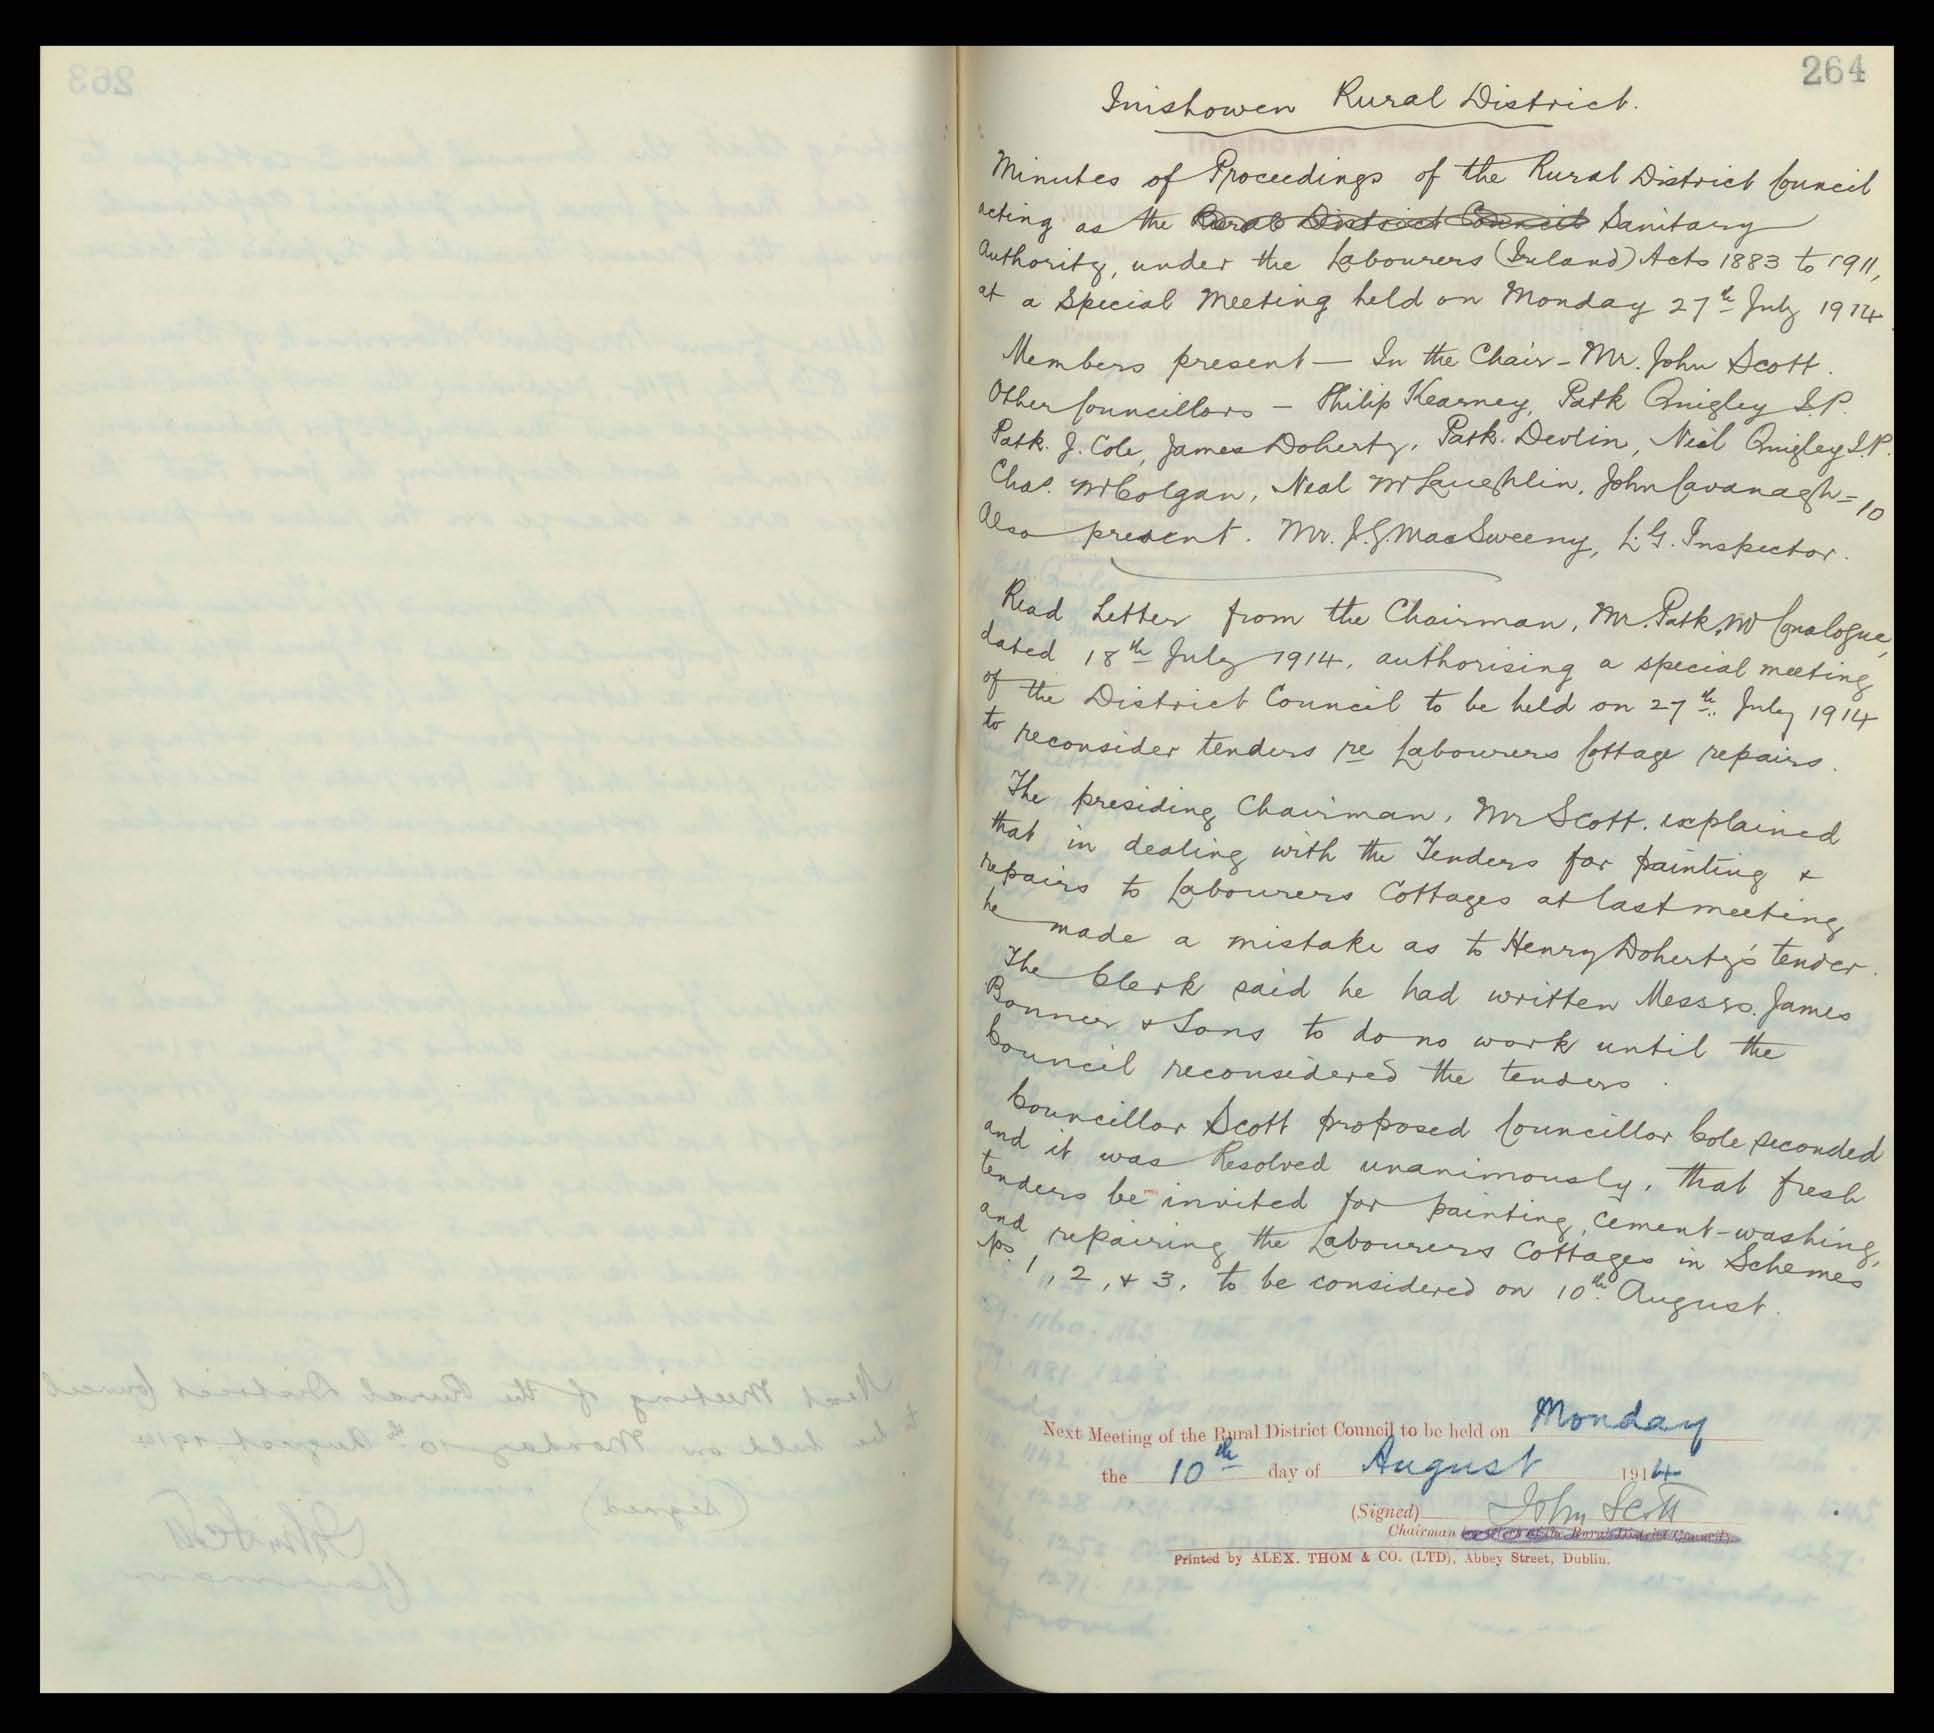 264
Inishowen Rural District.
Minutes of Proceedings of the Rural District Council
acting as the Rural District Council Sanitary
Authority, under the Labourers (Ireland) Acts 1883 to 1911,
at a Special Meeting held on Monday 27th July 1914
Members present — In the Chair - Mr. John Scott.
Other Councillors — Philip Kearney, Patk Quigley J.P.
Patk. J. Cole, James Doherty, Patk. Devlin, Neil Quigley J.P.
Chas. McColgan, Neal McLaughlin, John Cavanagh = 10
Also present. Mr. J.G. MacSweeny, L.G. Inspector.
Read Letter from the Chairman, Mr. Patk. McConalogue,
dated 18th July 1914, authorising a special meeting
of the District Council to be held on 27th July 1914
to reconsider tenders re Labourers Cottage repairs.
The presiding Chairman, Mr Scott, explained
that in dealing with the Tenders for painting &
repairs to Labourers Cottages at last meeting
he made a mistake as to Henry Doherty's tender.
The Clerk said he had written Messrs. James
Bonner & Sons to do no work until the
Council reconsidered the tenders.
Councillor Scott proposed Councillor Cole seconded
and it was Resolved unanimously, that fresh
tenders be invited for painting, cement-washing,
and repairing the Labourers Cottages in Schemes
Nos. 1, 2, & 3, to be considered on 10th August.
Next Meeting of the Rural District Council to be held on Monday
the 10th day of August 1914
(Signed) John Scott
Chairman
Printed by ALEX. THOM & CO. (LTD), Abbey Street, Dublin.